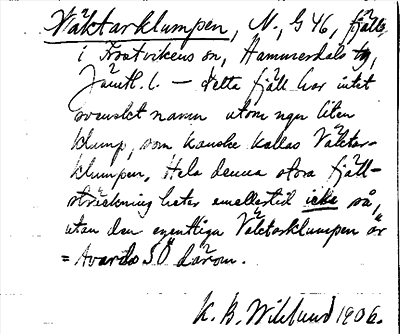 Väktarklumpen, N., G 46, fjäll,
i Frostvikens sn, Hammerdals tg,
Jämtl. l. — Detta fjäll har intet
svenskt namn utom ngn liten
klump, som kanske kallas Väktar-
klumpen. Hela denna stora fjäll-
sträckning heter emellertid icke så,
utan den egentliga Väktarklumpen är
= SO därom.
K. B. Wiklund 1906.